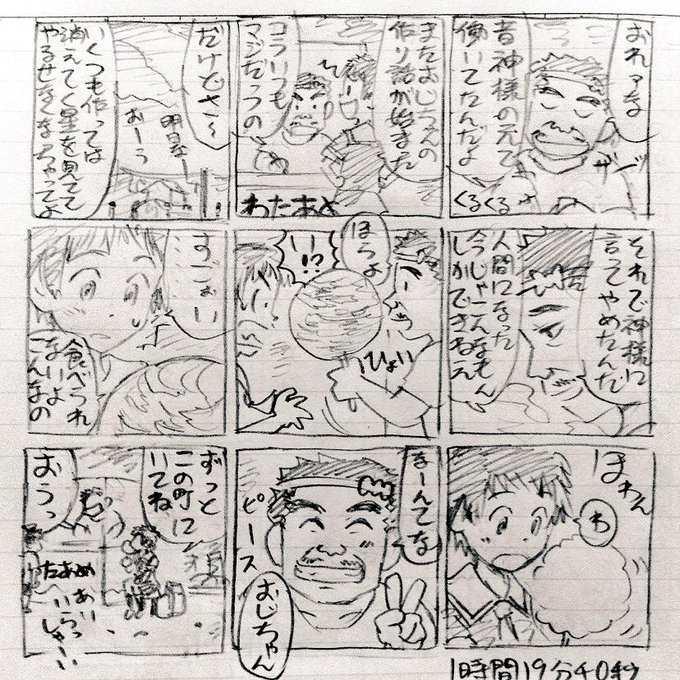 おれァな
昔神様の元で
働いてたんだよ
くるくる
またおじちゃんの
作り話が始また
コラいつも
マジだっつの
わたあめ
だけどさ〜
明日なー
おーう
いくつも作っては
消えてく星を見てて
やるせなくなっちゃってよ
それで神様に
言ってやめたんだ
人間になった
今じゃこんなもん
しかできねェ
ほらよ
い!?
ひょい
すごぉい
食べきれ
ないよ
こんなの
ほわん
わ
なーんてな
ピース
おじちゃん
ずっと
この町に
いてね
おうっ
たあめ
あい
いらっ
しゃーい
1時間19分40秒